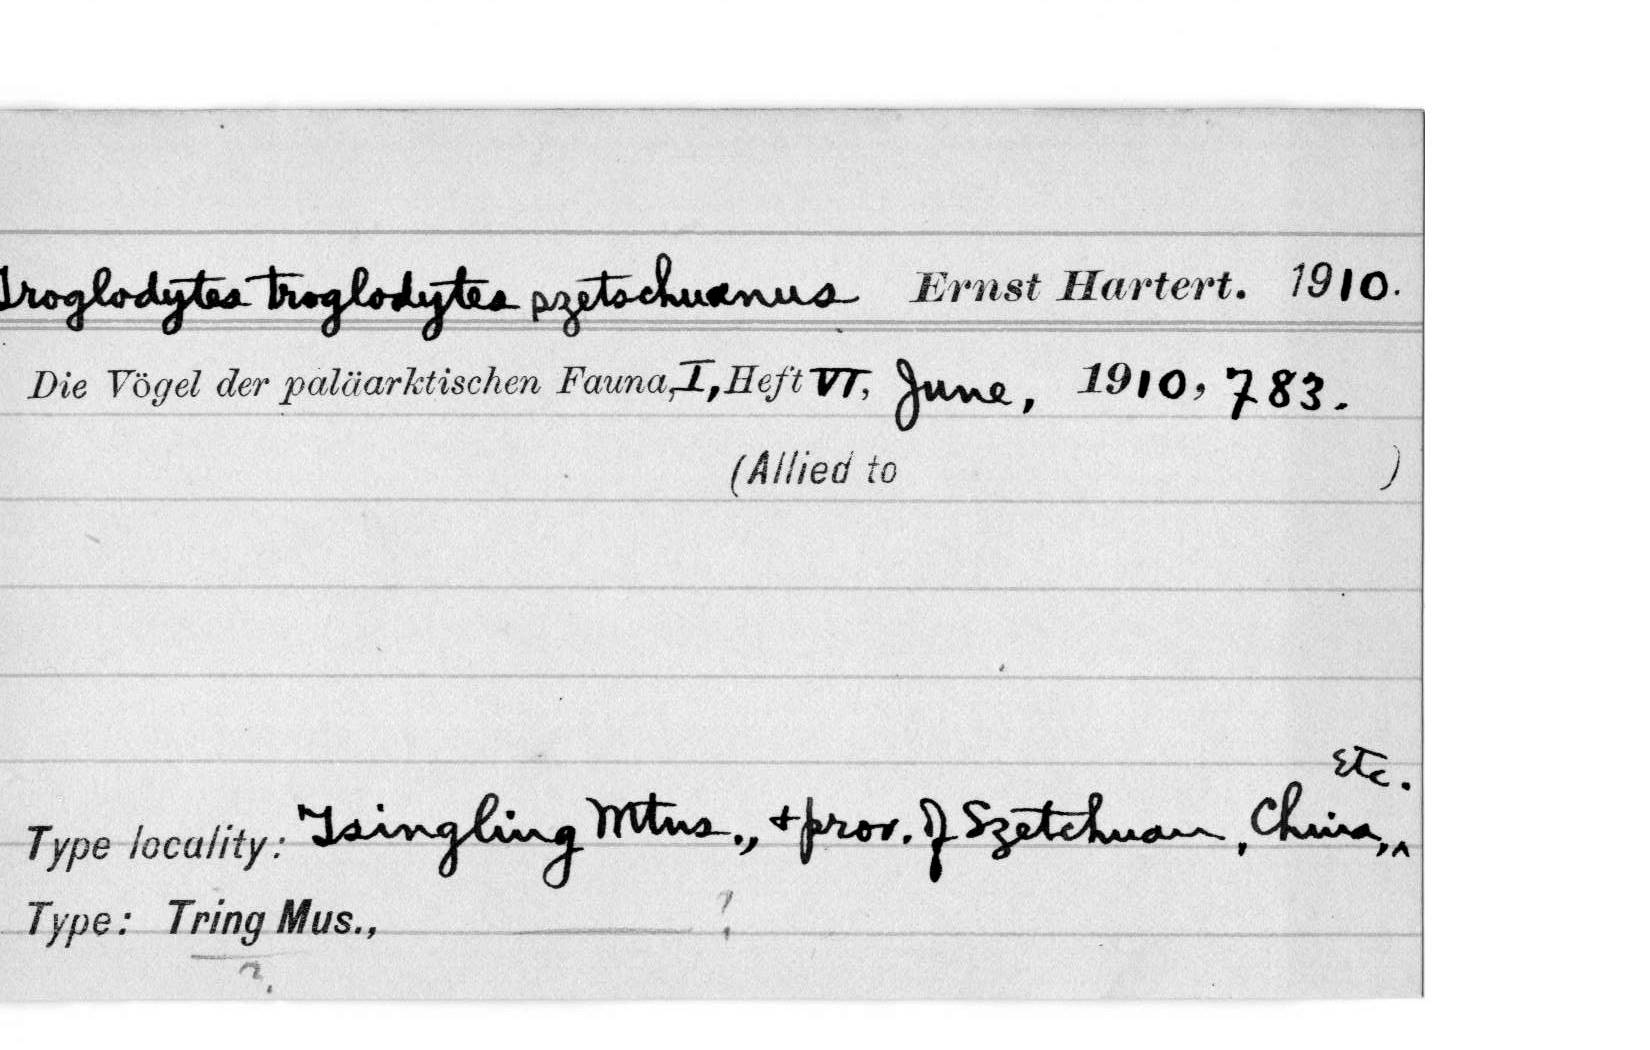 Troglodytes troglodytes szetschuanus Ernst Hartert. 1910.
Die Vögel der paläarktischen Fauna, I, Heft VI, June, 1910, 783.
(Allied to )
etc.
Type locality: Tsingling Mtns., + prov. of Szetchuan, China,^
Type: Tring Mus., ?
?